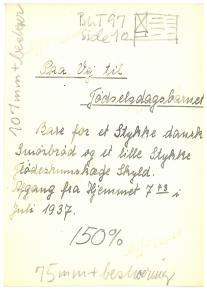 107mm + beskær
BUT 97
Side 10
Paa Vej til
Fødselsdagsbarnet
Bare for et Stykke dansk
Smørbrød og et lille Stykke
Flødeskumskage Skyld.
Afgang fra Hjemmet 7 i
Juli 1937.
150%
75mm + beskæring